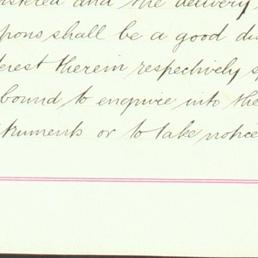 istered and the delivery
pons shall be a good dis
erest therein respectively s
bound to enquire into the
truments or to take notice